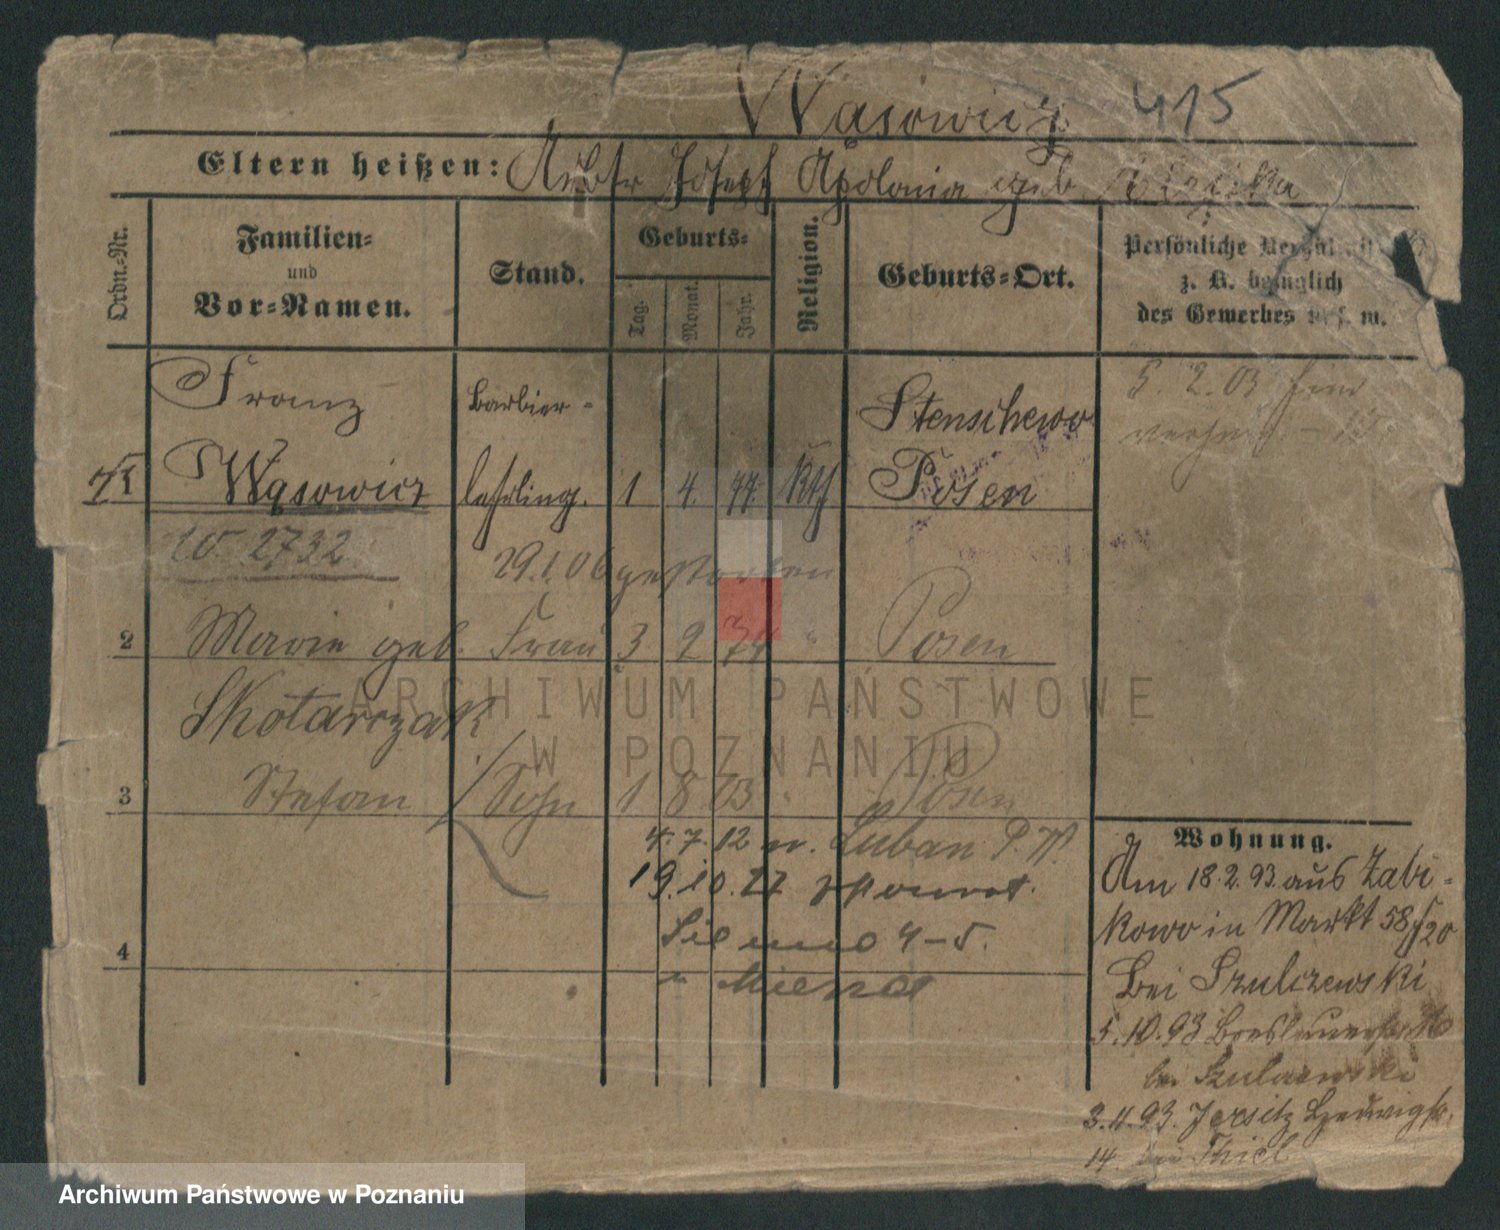 Wąsowicz 415
Eltern heißen: Arbtr Joseph Apolonia geb
Ordn.-Nr.
Familien- und Vor-Namen.
Stand.
Geburts-
Tag. Monat. Jahr.
Religion.
Geburts-Ort.
Persönliche
z. B. bezüglich
des Gewerbes u. s. w.
Franz Barbier- Stenschewo
Wąsowicz lehrling. 1 4. 77. kth Posen
5. 2. 03
10. 2732
29.1.06 gestorben
2 Marie geb. Frau 3 2 74 " Posen
Skotarczak
3 Stefan Sohn 1 8 03 " Posen
4.7.12 n. Luban P. W.
19.10.27
4-5.
4
Wohnung.
Am 18.2.93. aus Zabi-
kowo in Markt 58/20
Bei Szulczewski
5.10.93 Breslauerstr
bei Szulczewski
3.11.93. Jersitz Hedwigstr.
14. bei Thiel
ARCHIWUM PAŃSTWOWE
W POZNANIU
Archiwum Państwowe w Poznaniu